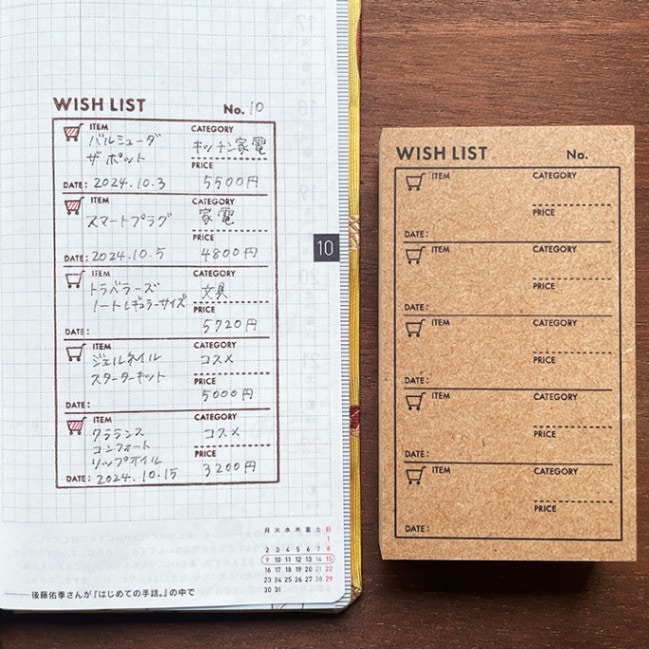 WISH LIST No. 10
ITEM CATEGORY
バルミューダ キッチン家電
ザ ポット PRICE
DATE: 2024.10.3 5500円
ITEM CATEGORY
スマートプラグ 家電
PRICE
DATE: 2024.10.5 4800円
ITEM CATEGORY
トラベラーズ 文具
ノートレギュラーサイズ PRICE
DATE: 5720円
ITEM CATEGORY
ジェルネイル コスメ
スターターキット PRICE
DATE: 5000円
ITEM CATEGORY
クラランス コスメ
コンフォート PRICE
リップオイル
DATE: 2024.10.15 3200円
10
月 火 水 木 金 土 日
1
2 3 4 5 6 7 8
9 10 11 12 13 14 15
16 17 18 19 20 21 22
23 24 25 26 27 28 29
30 31
——後藤佑季さんが『はじめての手話。』の中で
WISH LIST No.
ITEM CATEGORY
PRICE
DATE:
ITEM CATEGORY
PRICE
DATE:
ITEM CATEGORY
PRICE
DATE:
ITEM CATEGORY
PRICE
DATE:
ITEM CATEGORY
PRICE
DATE: